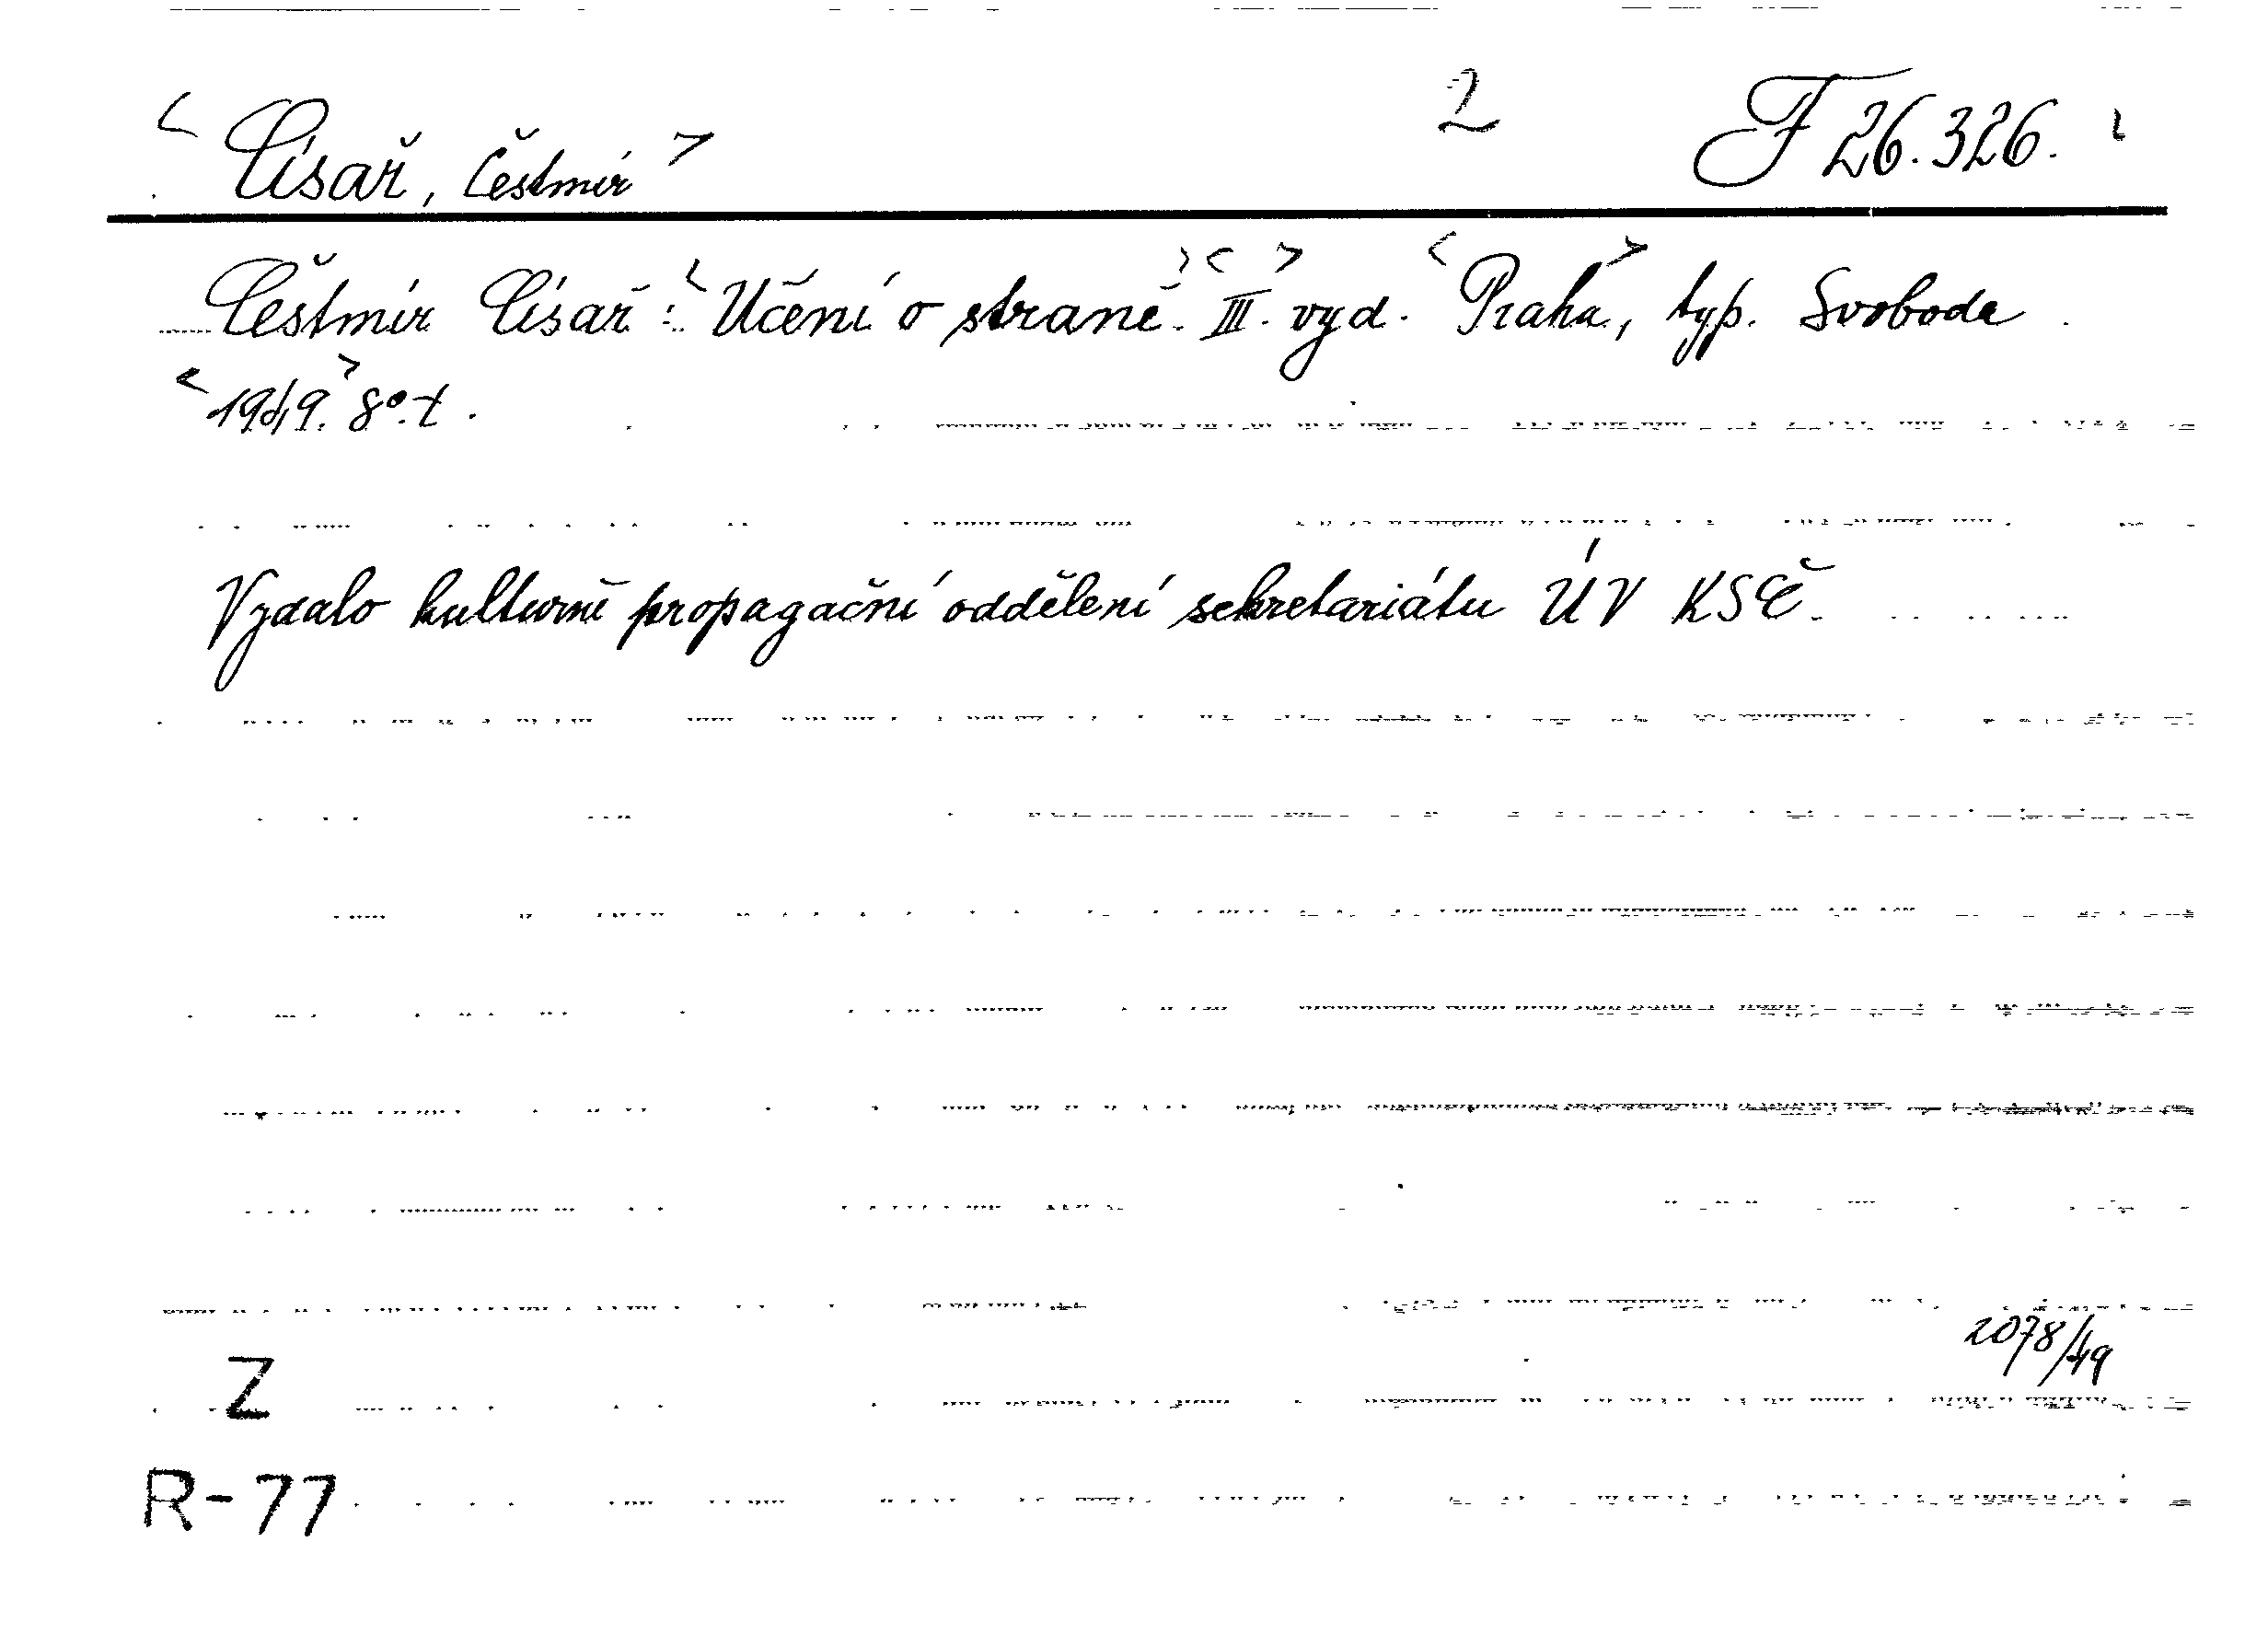 < Císař, Čestmír > 2 F 26.326.
Čestmír Císař: <Učení o straně.> <III.> vyd. <Praha>, typ. Svoboda
<1949.> 8°.t.
Vydalo kulturně propagační oddělení sekretariátu ÚV KSČ.
2078/49
Z
R-77